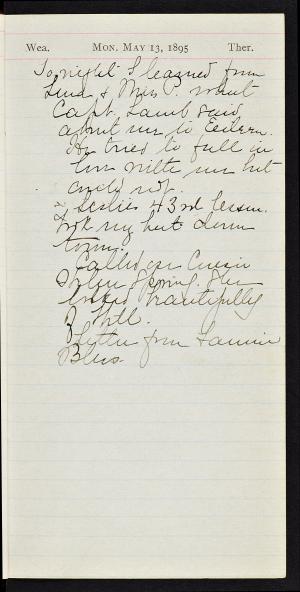 Wea. MON. MAY 13, 1895 Ther.
Tonight I learned from
Lend & Mrs P. what
Capt. Lamb said
about me to Eeileen.
He tried to fall in
love with me but
could not.
Leslie's 43rd lesson.
Took my hat down
town.
Called on Cousin
Spring. She
looked beautifully
Letter from Fannie
Bliss.